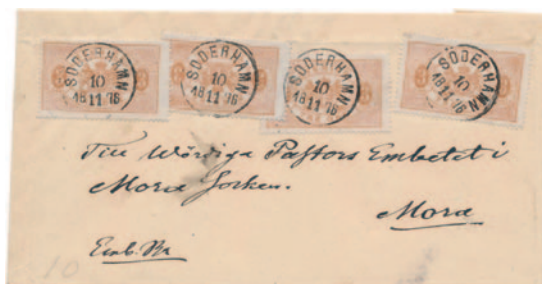 SÖDERHAMN 10 18 11 76
SÖDERHAMN 10 18 11 76
SÖDERHAMN 10 18 11 76
SÖDERHAMN 10 18 11 76
Till Wördiga Pastors Embetet i
Mora Socken.
Mora
Emb. Br
10